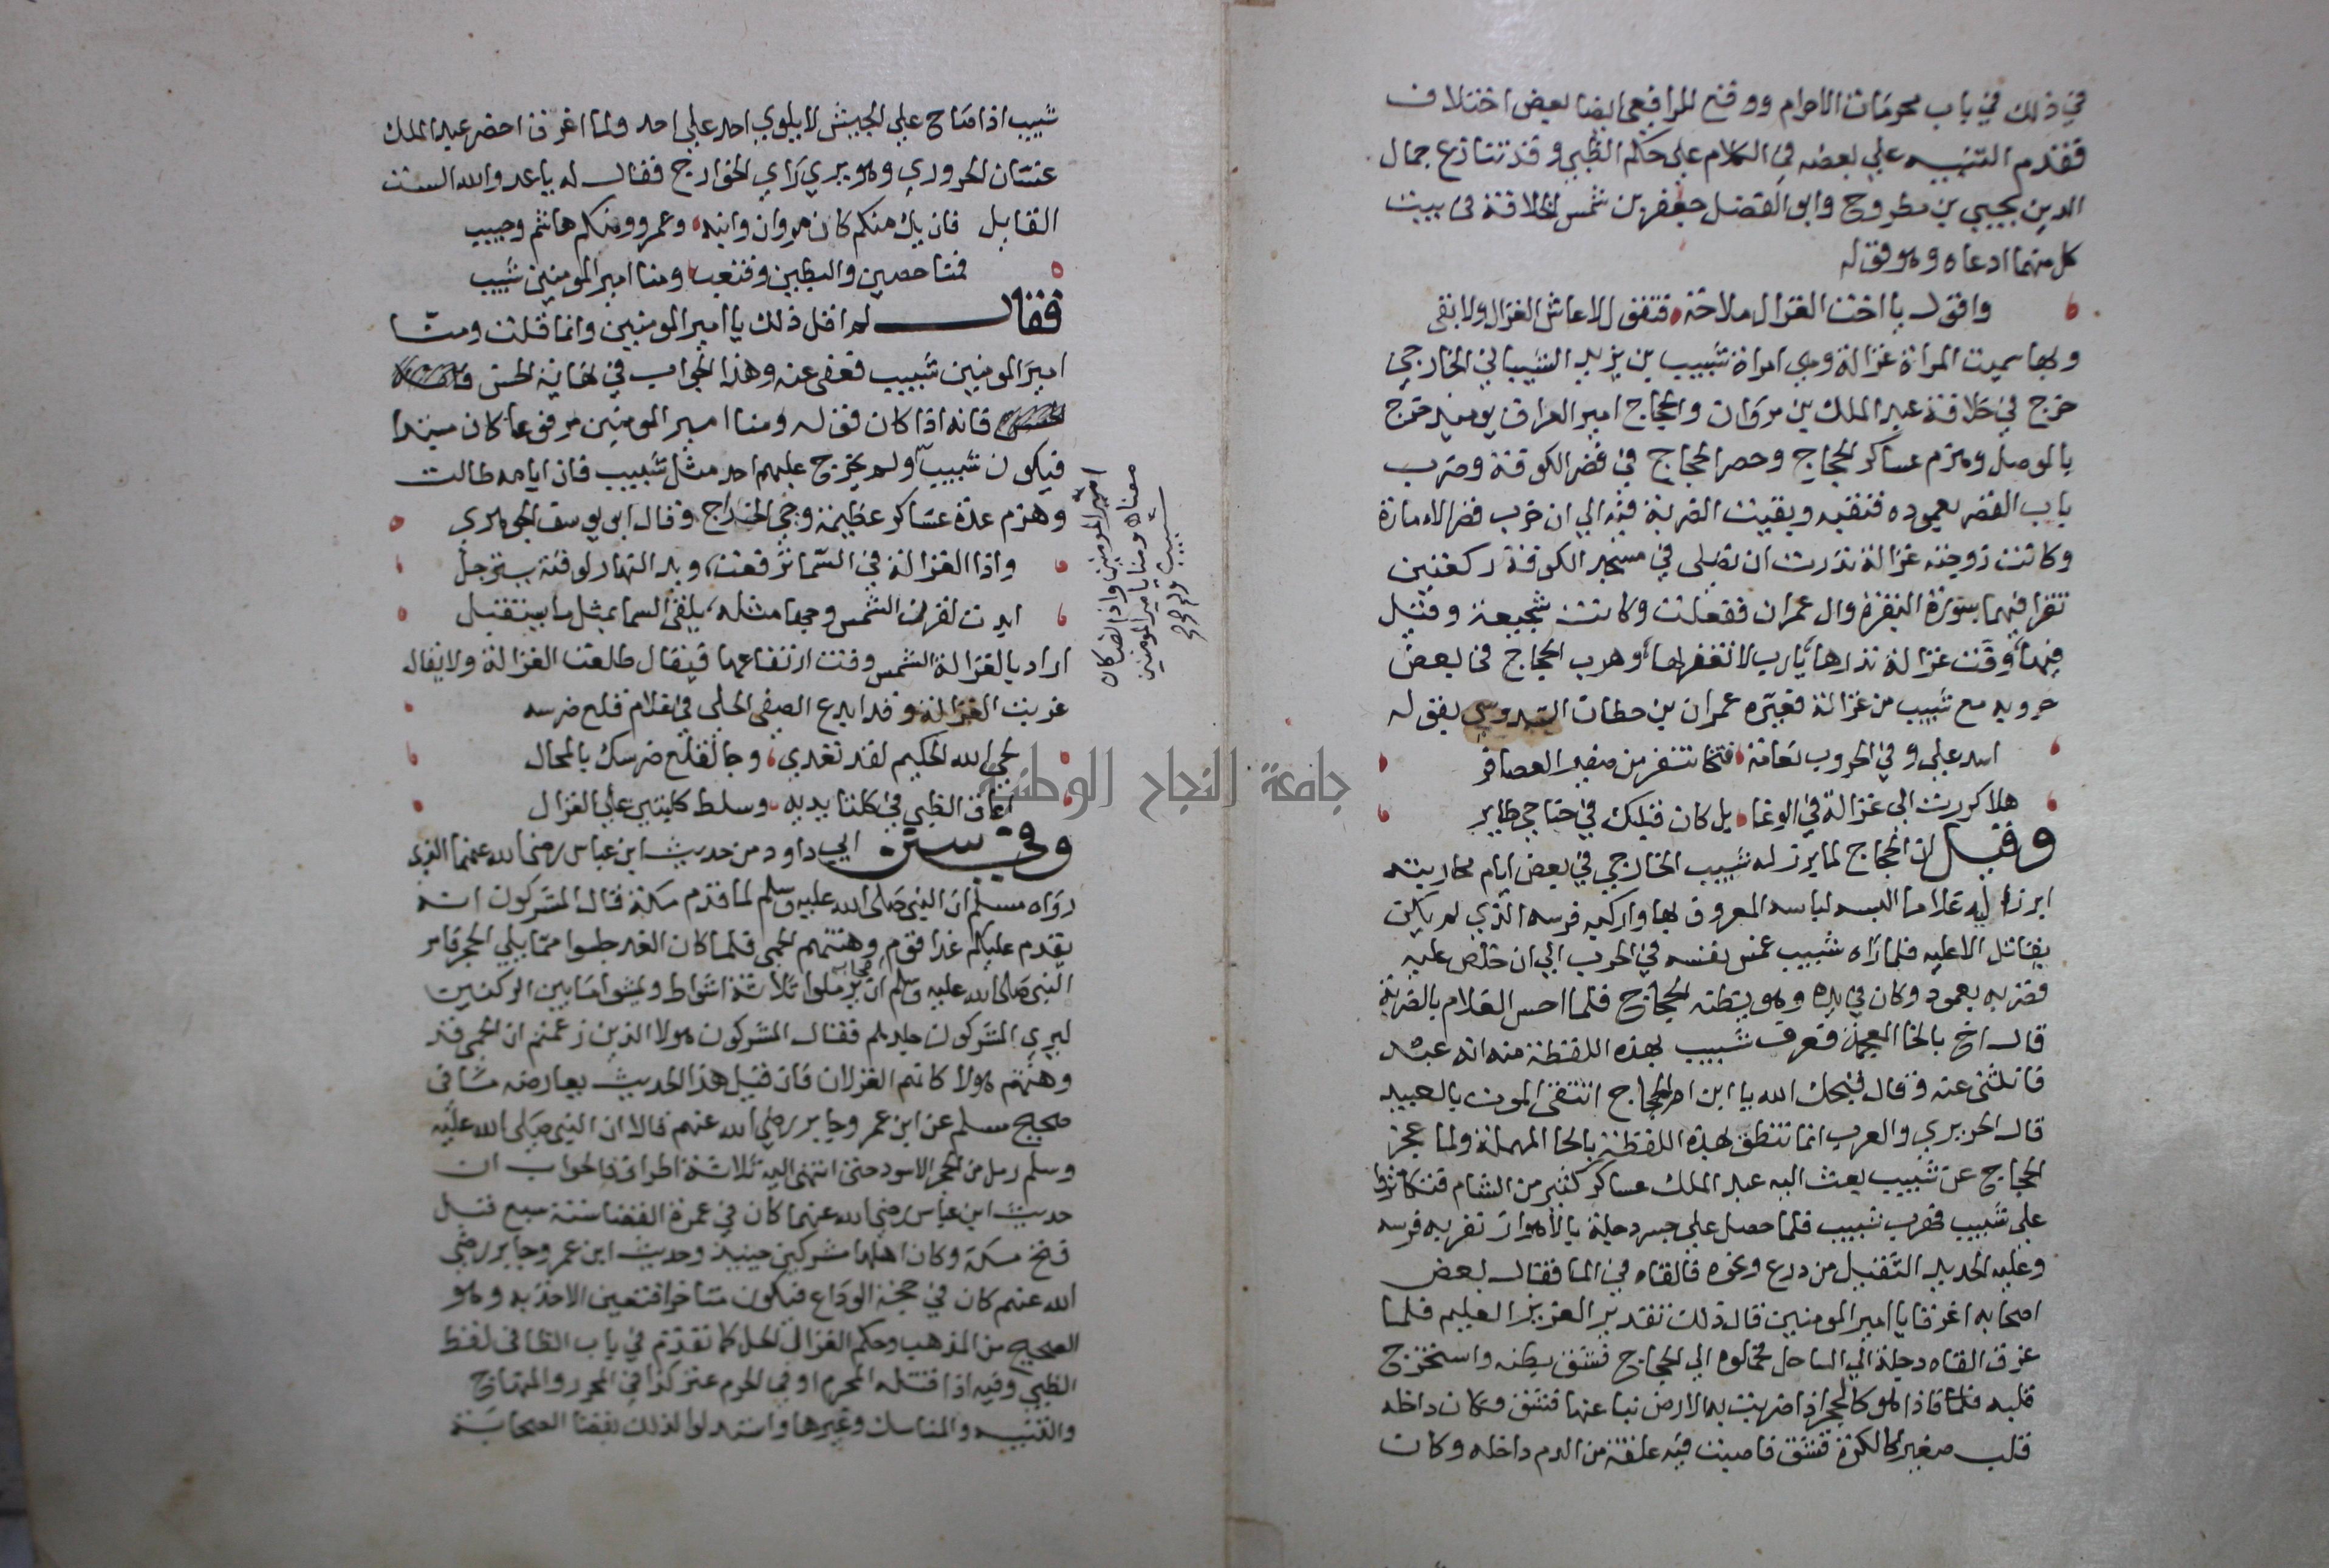 في ذلك في باب محرمات الاحرام ووقع للرافعي ايضا بعض اختلاف
فقدم التنبيه علي بعضه في الكلام علي حكم الظبي وقد تنازع جمال
الدين يحيي بن مطروح وابو الفضل جعفر بن شمس الخلافة في بيت
كل منهما ادعاه وهو قوله
واقول يا اخت الغزال ملاحة فتقول لا عاش الغزال ولا بقى
وبها سميت المراة غزالة وهي امراة شبيب بن يزيد الشيباني الخارجي
خرج في خلافة عبد الملك بن مروان والحجاج امير العراق يوميذ خرج
بالموصل وهزم عساكر الحجاج وحصر الحجاج في قصر الكوفة وضرب
باب القصر بعموده فنقبه وبقيت الضربة فيه الي ان خرب قصر الامارة
وكانت زوجته غزالة نذرت ان تصلى في مسجد الكوفة ركعتين
تقرا فيهما بسورة البقرة وال عمران ففعلت وكانت شجيعة وقيل
فيها وفت غزالة نذرها يا رب لا تغفر لها وهرب الحجاج في بعض
حروبه مع شبيب من غزالة فعيره عمران بن حطان السدوسي بقوله
اسد علي وفي الحروب نعامة فتخا تنفر من صفير الصافر
هلا كررت الى غزالة في الوغا بل كان قلبك في جناحي طاير
وقيل ان الحجاج لما برز له شبيب الخارجي في بعض ايام محاربته
ابرز اليه غلاما البسه لباسه المعروف بها واركبه فرسه الذي لم يكن
يقاتل الا عليه فلما راه شبيب غمس نفسه في الحرب الي ان خلص عليه
فضربه بعمود وكان في يده وهو يظنه الحجاج فلما احس الغلام بالضربة
قال اخ بالخا المعجمة فعرف شبيب بهذه اللفظة منه انه عبد
فانثنى عنه وقال قبحك الله يا ابن ام الحجاج اتتقى الموت بالعبيد
قال الحريري والعرب انما تنطق بهذه اللفظة بالحا المهملة ولما عجز
الحجاج عن شبيب بعث اليه عبد الملك عساكر كثير من الشام فتكاثروا
على شبيب فهرب شبيب فلما حصل علي جسر دجلة بالاهواز نفر به فرسه
وعليه الحديد الثقيل من درع ونحوه فالقاه في الما فقال بعض
اصحابه اغرقا يا امير المومنين قال ذلك تقدير العزيز العليم فلما
غرق القاه دجلة الي الساحل فحملوه الي الحجاج فشق بطنه واستخرج
قلبه فاذا هو كالحجر اذا ضربت به الارض نبا عنها فشق فكان داخله
قلب صغير كالكرة فشق فاصيبت فيه علقة من الدم داخله وكان
شبيب اذا صاح علي الجيش لا يلوي احد علي احد ولما اغرق احضر عبد الملك
عتبان الحروري وهو يري راي الخوارج فقال له يا عدو الله الست
القايل فان يك منكم كان مروان وابنه وعمرو ومنكم هاشم وحبيب
فمنا حصين والبطين وقعنب ومنا امير المومنين شبيب
فقال لم اقل ذلك يا امير المومنين وانما قلت ومنا
امير المومنين شبيب فعفى عنه وهذا الجواب في نهاية الحسن
فانه اذا كان قوله ومنا امير المومنين مرفوعا كان مبتدا
فيكون شبيب ولم يخرج عليهم احد مثل شبيب فان ايامه طالت
وهزم عدة عساكر عظيمة وجبي الخراج وقال ابي يوسف الجوهري
واذا الغزالة في السما ترفعت وبد النهار لوقته يترجل
ابدت لقرن الشمس وجها مثله يلقى السما بمثل ما يستقبل
اراد بالغزالة الشمس وقت ارتفاعها فيقال طلعت الغزالة ولا يقال
غربت الغزالة وقد ابدع الصفي الحلي في غلام قلع ضرسه
لحي الله الحكيم لقد تعدي وجا لقلع ضرسك بالمحال
اعاق الظبي في كلتا يديه وسلط كلبتين علي الغزال
وفي سنن ابي داود من حديث ابن عباس رضى الله عنهما الذي
رواه مسلم ان النبي صلى الله عليه وسلم لما قدم مكة قال المشركون انه
يقدم عليكم غدا قوم وهنتهم الحمى فلما كان الغد جلسوا مما يلي الحجر فامر
النبي صلى الله عليه وسلم اصحابه ان يرملوا ثلاثة اشواط ويمشوا ما بين الركنين
ليري المشركون جلدهم فقال المشركون هولا الذين زعمتم ان الحمى قد
وهنتهم هولا كانهم الغزلان فان قيل هذا الحديث يعارضه ما في
صحيح مسلم عن ابن عمر وجابر رضي الله عنهم قالا ان النبي صلي الله عليه
وسلم رمل من الحجر الاسود حتى انتهى اليه ثلاثة اطواف فالجواب ان
حديث ابن عباس رضي الله عنهما كان في عمرة القضا سنة سبع قبل
فتح مكة وكان اهلها مشركين حينيذ وحديث ابن عمر وجابر رضي
الله عنهم كان في حجة الوداع فيكون متاخرا فتعين الاخذ به وهو
الصحيح من المذهب وحكم الغزال الحل كما تقدم في باب الظا في لفظ
الظبي وفيه اذا قتله المحرم او في الحرم عنز كذا في المحرر والمنهاج
والتنبيه والمناسك وغيرها واستدلوا لذلك بقضا الصحابة
امير المومنين واذا نصب كان
معناه ومنا يا امير المومنين
شبيب
جامعة النجاح الوطنية